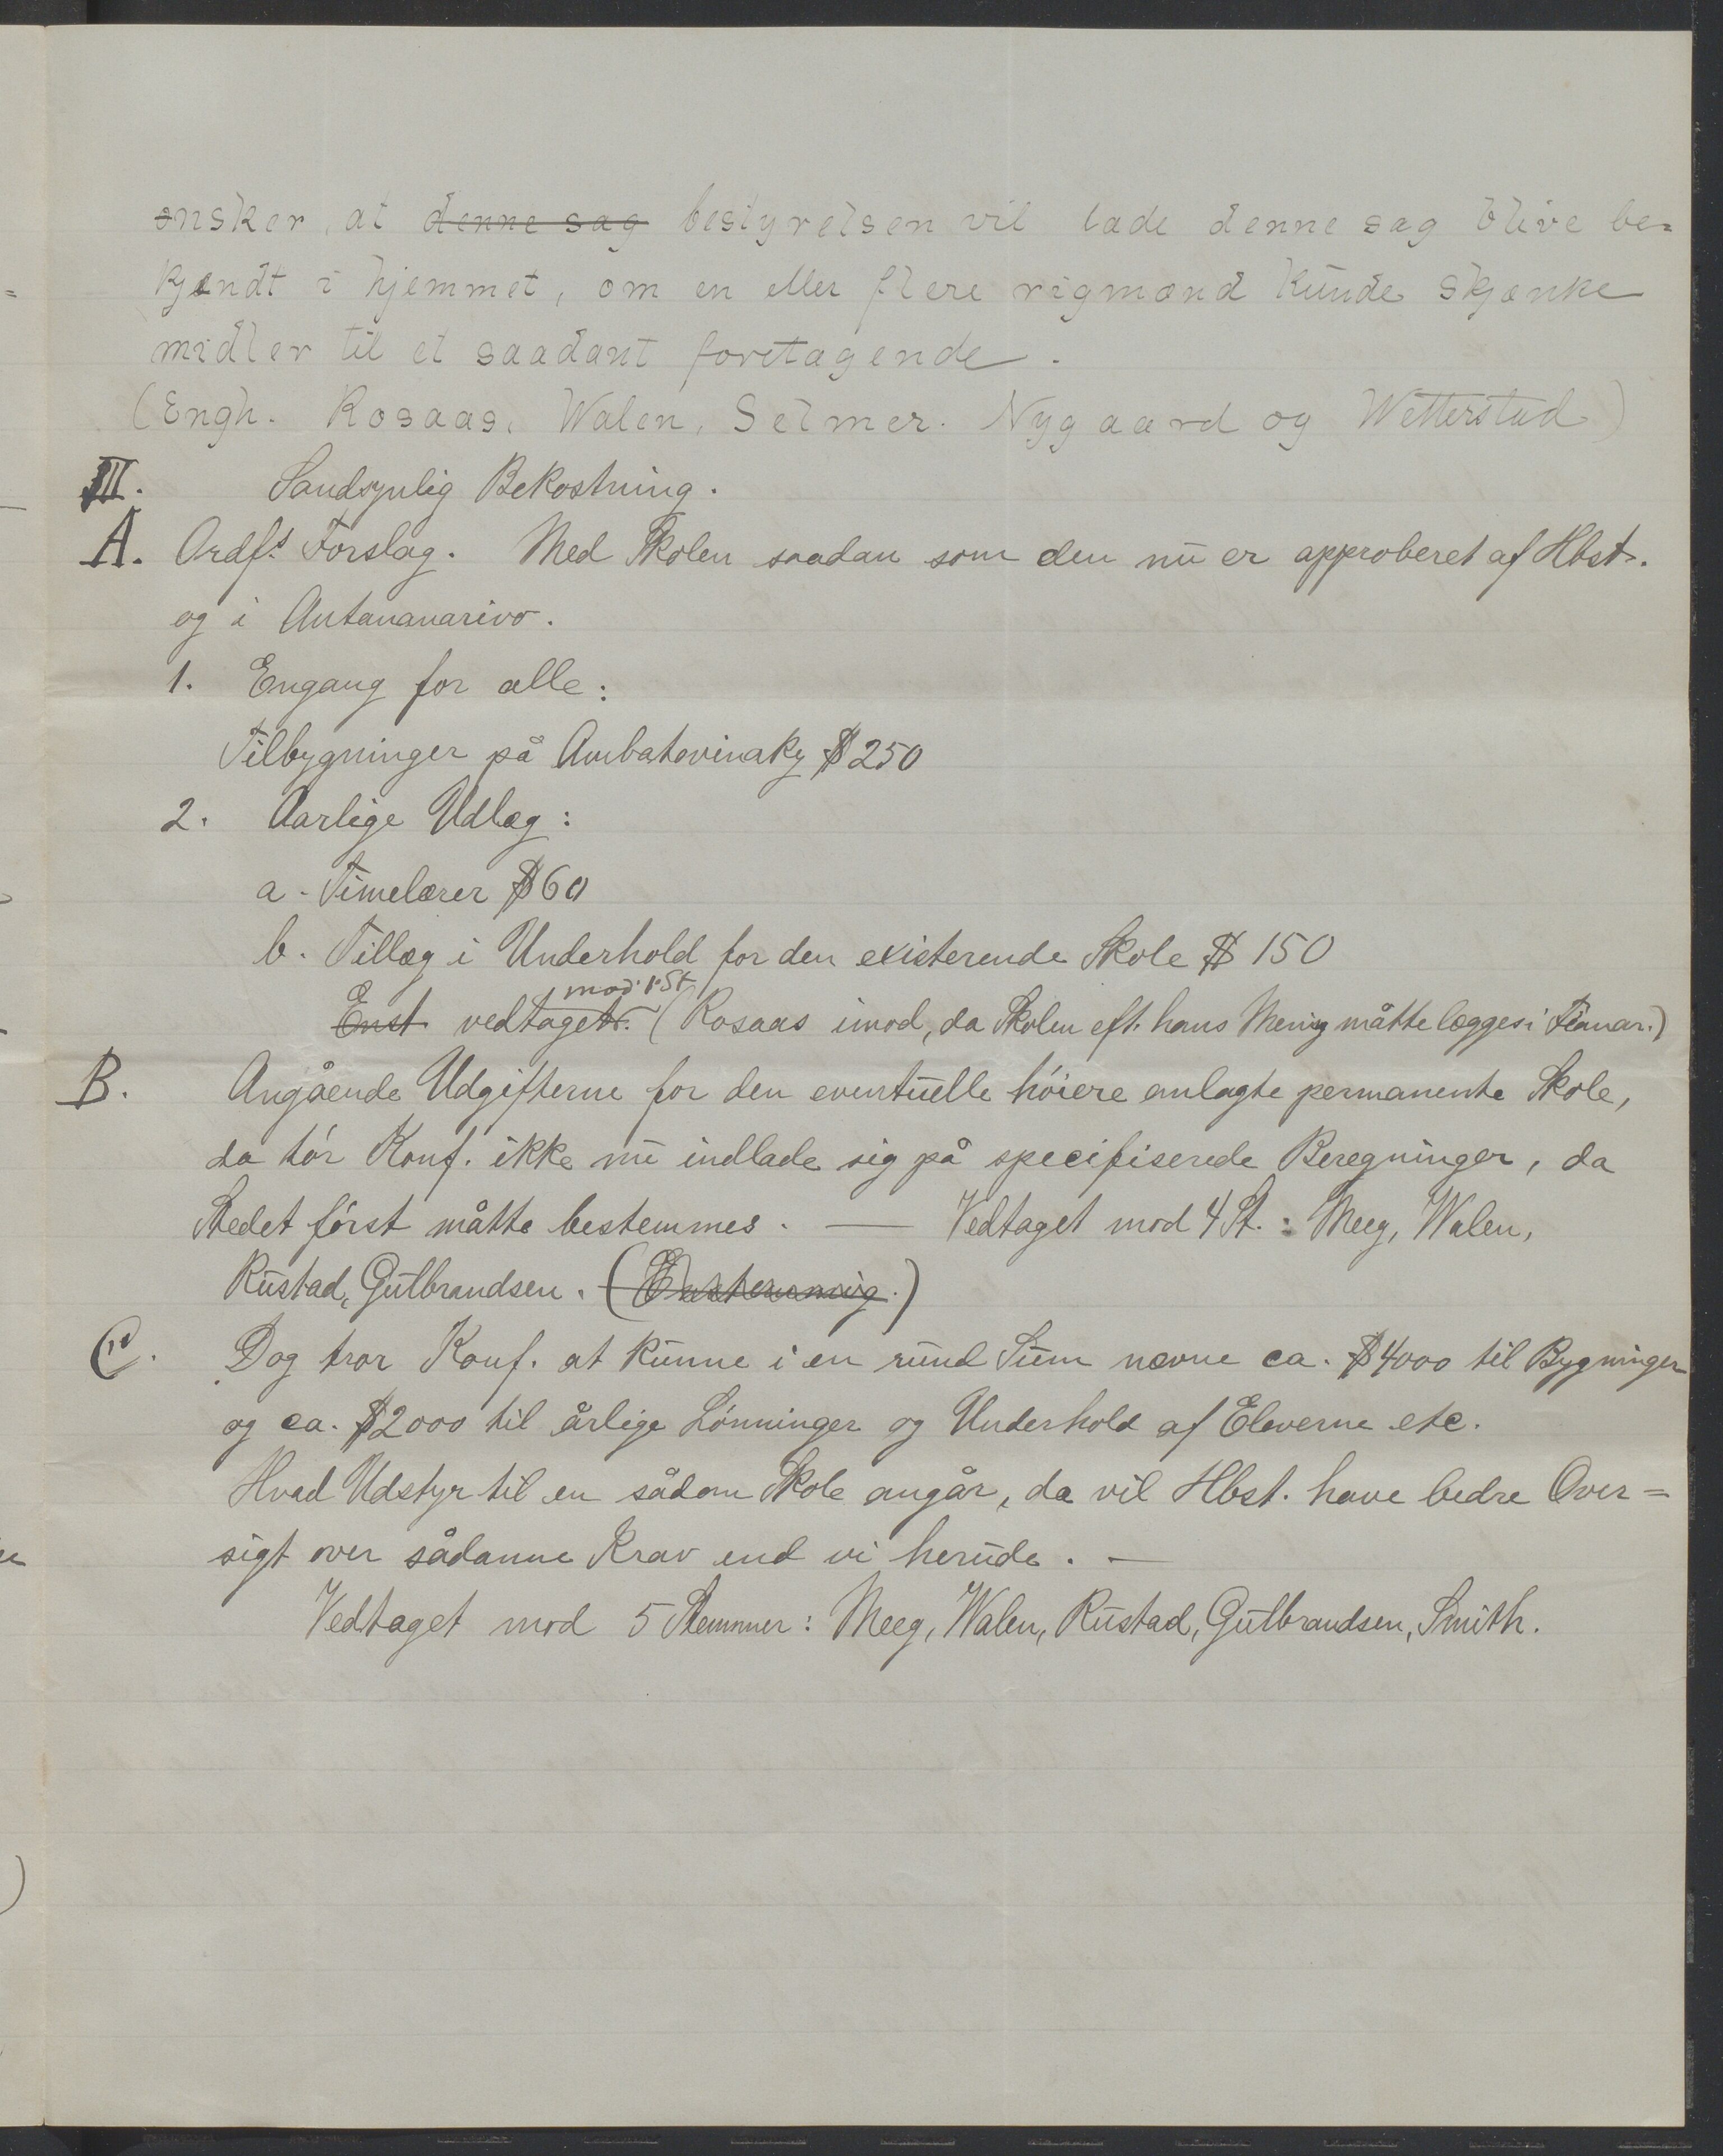 ønsker, at denne sag bestyrelsen vil lade denne sag blive be=
kjendt i hjemmet, om en eller flere rigmænd kunde skjænke
midler til et saadant foretagende.
(Engh. Rosaas, Walen, Selmer. Nygaard og Wetterstad)
III. Sandsynlig Bekostning.
A. Ordf.s Forslag. Med Skolen saadan som den nu er approberet af Hbst.
og i Antananarivo.
1. Engang for alle:
Tilbygninger på Ambatovinaky $250
2. Aarlige Udlæg:
a. Timelærer $60
b. Tillæg i Underhold for den existerende Skole $ 150
mod 1 St
Enst vedtaget. (Rosaas imod, da Skolen eft. hans Mening måtte lægges i Fianar.)
B. Angående Udgifterne for den eventuelle høiere anlagte permanente Skole,
da tør Konf. ikke nu indlade sig på specifiserede Beregninger, da
Stedet først måtte bestemmes. — Vedtaget mod 4 St.: Meeg, Walen,
Rustad, Gulbrandsen. (Enstemmig.)
C. Dog tror Konf. at kunne i en rund Sum nævne ca. $4000 til Bygninger
og ca. $2000 til årlige Lønninger og Underhold af Eleverne etc.
Hvad Udstyr til en sådan Skole angår, da vil Hbst. have bedre Over=
sigt over sådanne Krav end vi herude. —
Vedtaget mod 5 Stemmer: Meeg, Walen, Rustad, Gulbrandsen, Smith.